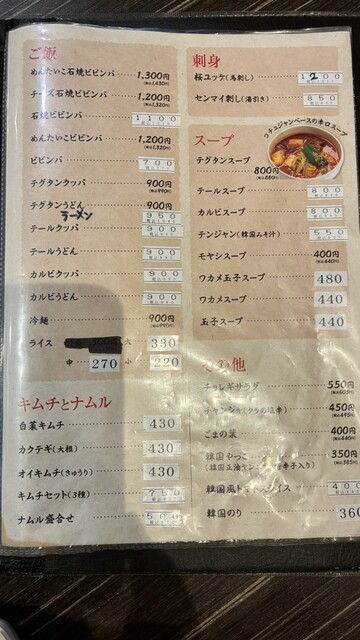 ご飯
めんたいこ石焼ビビンバ 1,300円
(税込1,430円)
チーズ石焼ビビンバ 1,200円
(税込1,320円)
石焼ビビンバ 1100
めんたいこビビンバ 1,200円
(税込1,320円)
ビビンバ 700
テグタンクッパ 900円
(税込990円)
テグタンうどん 900円
ラーメン 950
テールクッパ 900
テールうどん 900
カルビクッパ 900
カルビうどん 900
冷麺 900円
(税込990円)
ライス 大 330
中 270 小 220
キムチとナムル
白菜キムチ 430
カクテギ(大根) 430
オイキムチ(きゅうり) 430
キムチセット(3種) 750
ナムル盛合せ 500
刺身
桜ユッケ(馬刺し) 1200
センマイ刺し(湯引き) 850
スープ
コチュジャンベースの辛口スープ
テグタンスープ 800円
(税込880円)
テールスープ 800
カルビスープ 800
テンジャン(韓国みそ汁) 550
モヤシスープ 400円
(税込440円)
ワカメ玉子スープ 480
ワカメスープ 440
玉子スープ 440
その他
チョレギサラダ 550円
(税込605円)
チャンジャ(タラの塩辛) 450円
(税込495円)
ごまの葉 400円
(税込440円)
韓国やっこ 350円
(税込385円)
韓国風トマトスライス 400
韓国のり 360